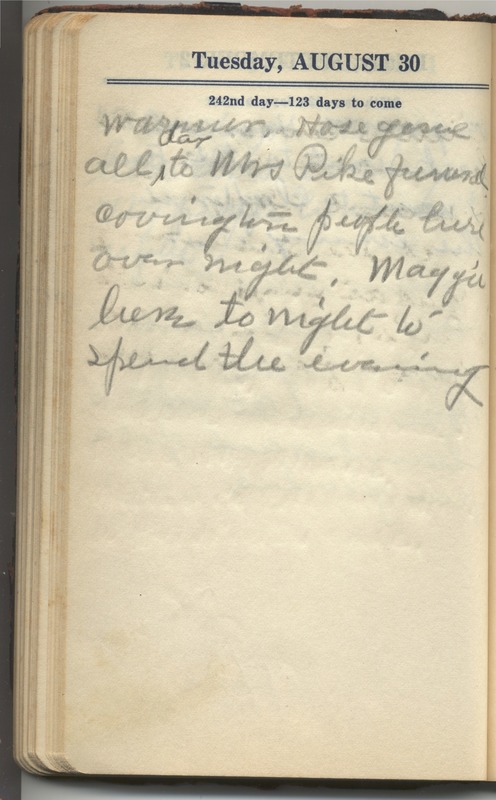 Tuesday, AUGUST 30
242nd day—123 days to come
warmer. Hose gone
day
all to Mrs Pike funeral
covington people here
over night. Maggie
here to night to
spend the evening